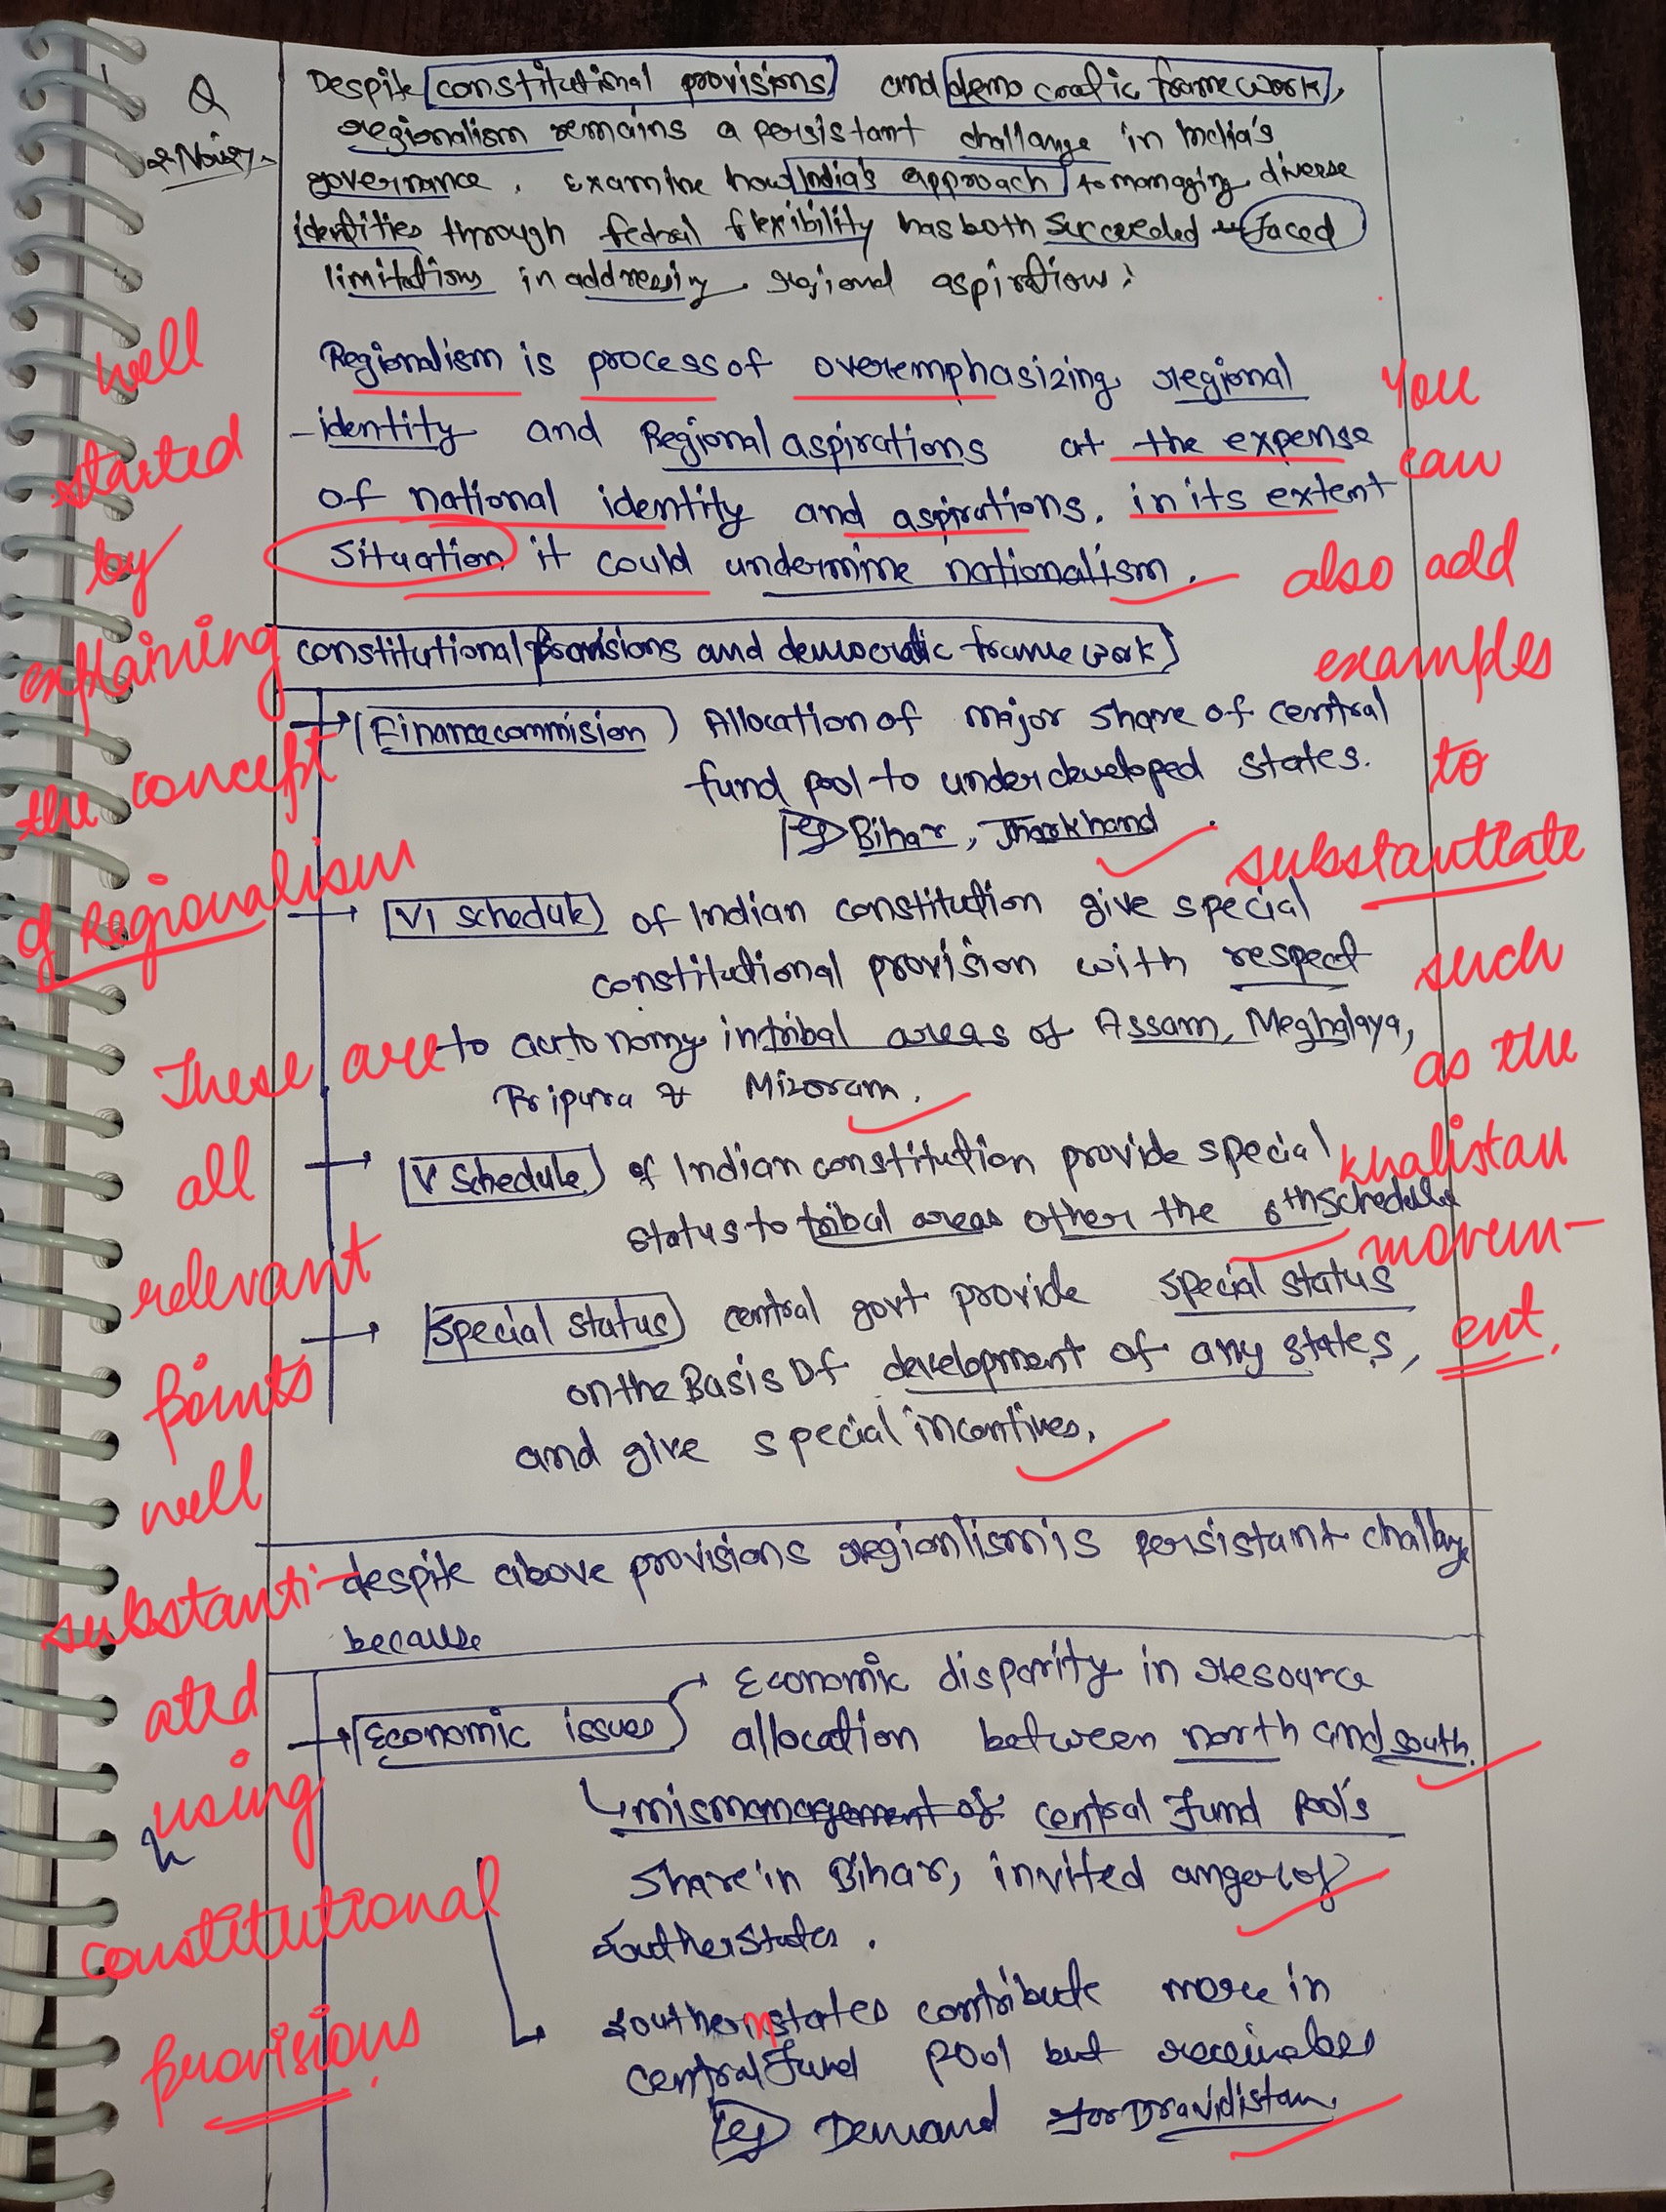 Q
Despite constitutional provisions and democratic framework,
regionalism remains a persistant challange in India's
governance. Examine how India's approach to managing diverse
identities through fedral flexibility has both succeeded faced
limitations in addressing regional aspiration:
Regionalism is process of overemphasizing regional
identity and Regional aspirations at the expense
of national identity and aspirations. in its extent
situation it could undermine nationalism.
constitutional provisions and democratic framework
Finance commision Allocation of major share of central
fund pool to underdeveloped states.
eg Bihar, Jharkhand
VI Schedule of Indian constitution give special
constitutional provision with respect
to autonomy in tribal areas of Assam, Meghalaya,
Tripura & Mizoram.
V Schedule of Indian constitution provide special
status to tribal areas other the 6th Schedule
Special status central govt provide special status
on the Basis of development of any states,
and give special incentives.
despite above provisions regionlism is persistant challange
because
Economic issues Economic disparity in resource
allocation between north and south.
mismanagement of central Fund pool's
share in Bihar, invited anger of
Souther States.
Southern states contribute more in
central Fund pool but receive less
eg Demand for Dravidistan.
well
started
by
explaining
the concept
of Regionalism
You
can
also add
examples
to
substantiate
such
as the
Khalistan
movem-
ent.
These are
all
relevant
points
well
substanti-
ated
using
constitutional
provisions.